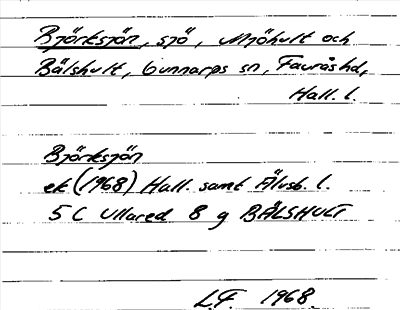 Björksjön, sjö, Mjöhult och
Bälshult, Gunnarps sn, Fauråshd,
Hall. l.
Björksjön
ek (1968) Hall. samt Älvsb. l.
5 C Ullared 8 g BÄLSHULT
L.F. 1968.